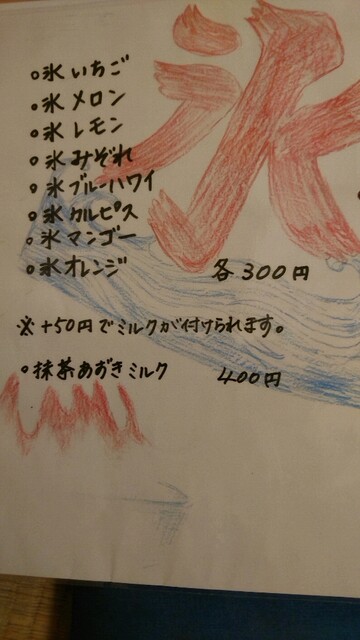 氷
○氷いちご
○氷メロン
○氷レモン
○氷みぞれ
○氷ブルーハワイ
○氷カルピス
○氷マンゴー
○氷オレンジ 各300円
※+50円でミルクが付けられます。
○抹茶あずきミルク 400円